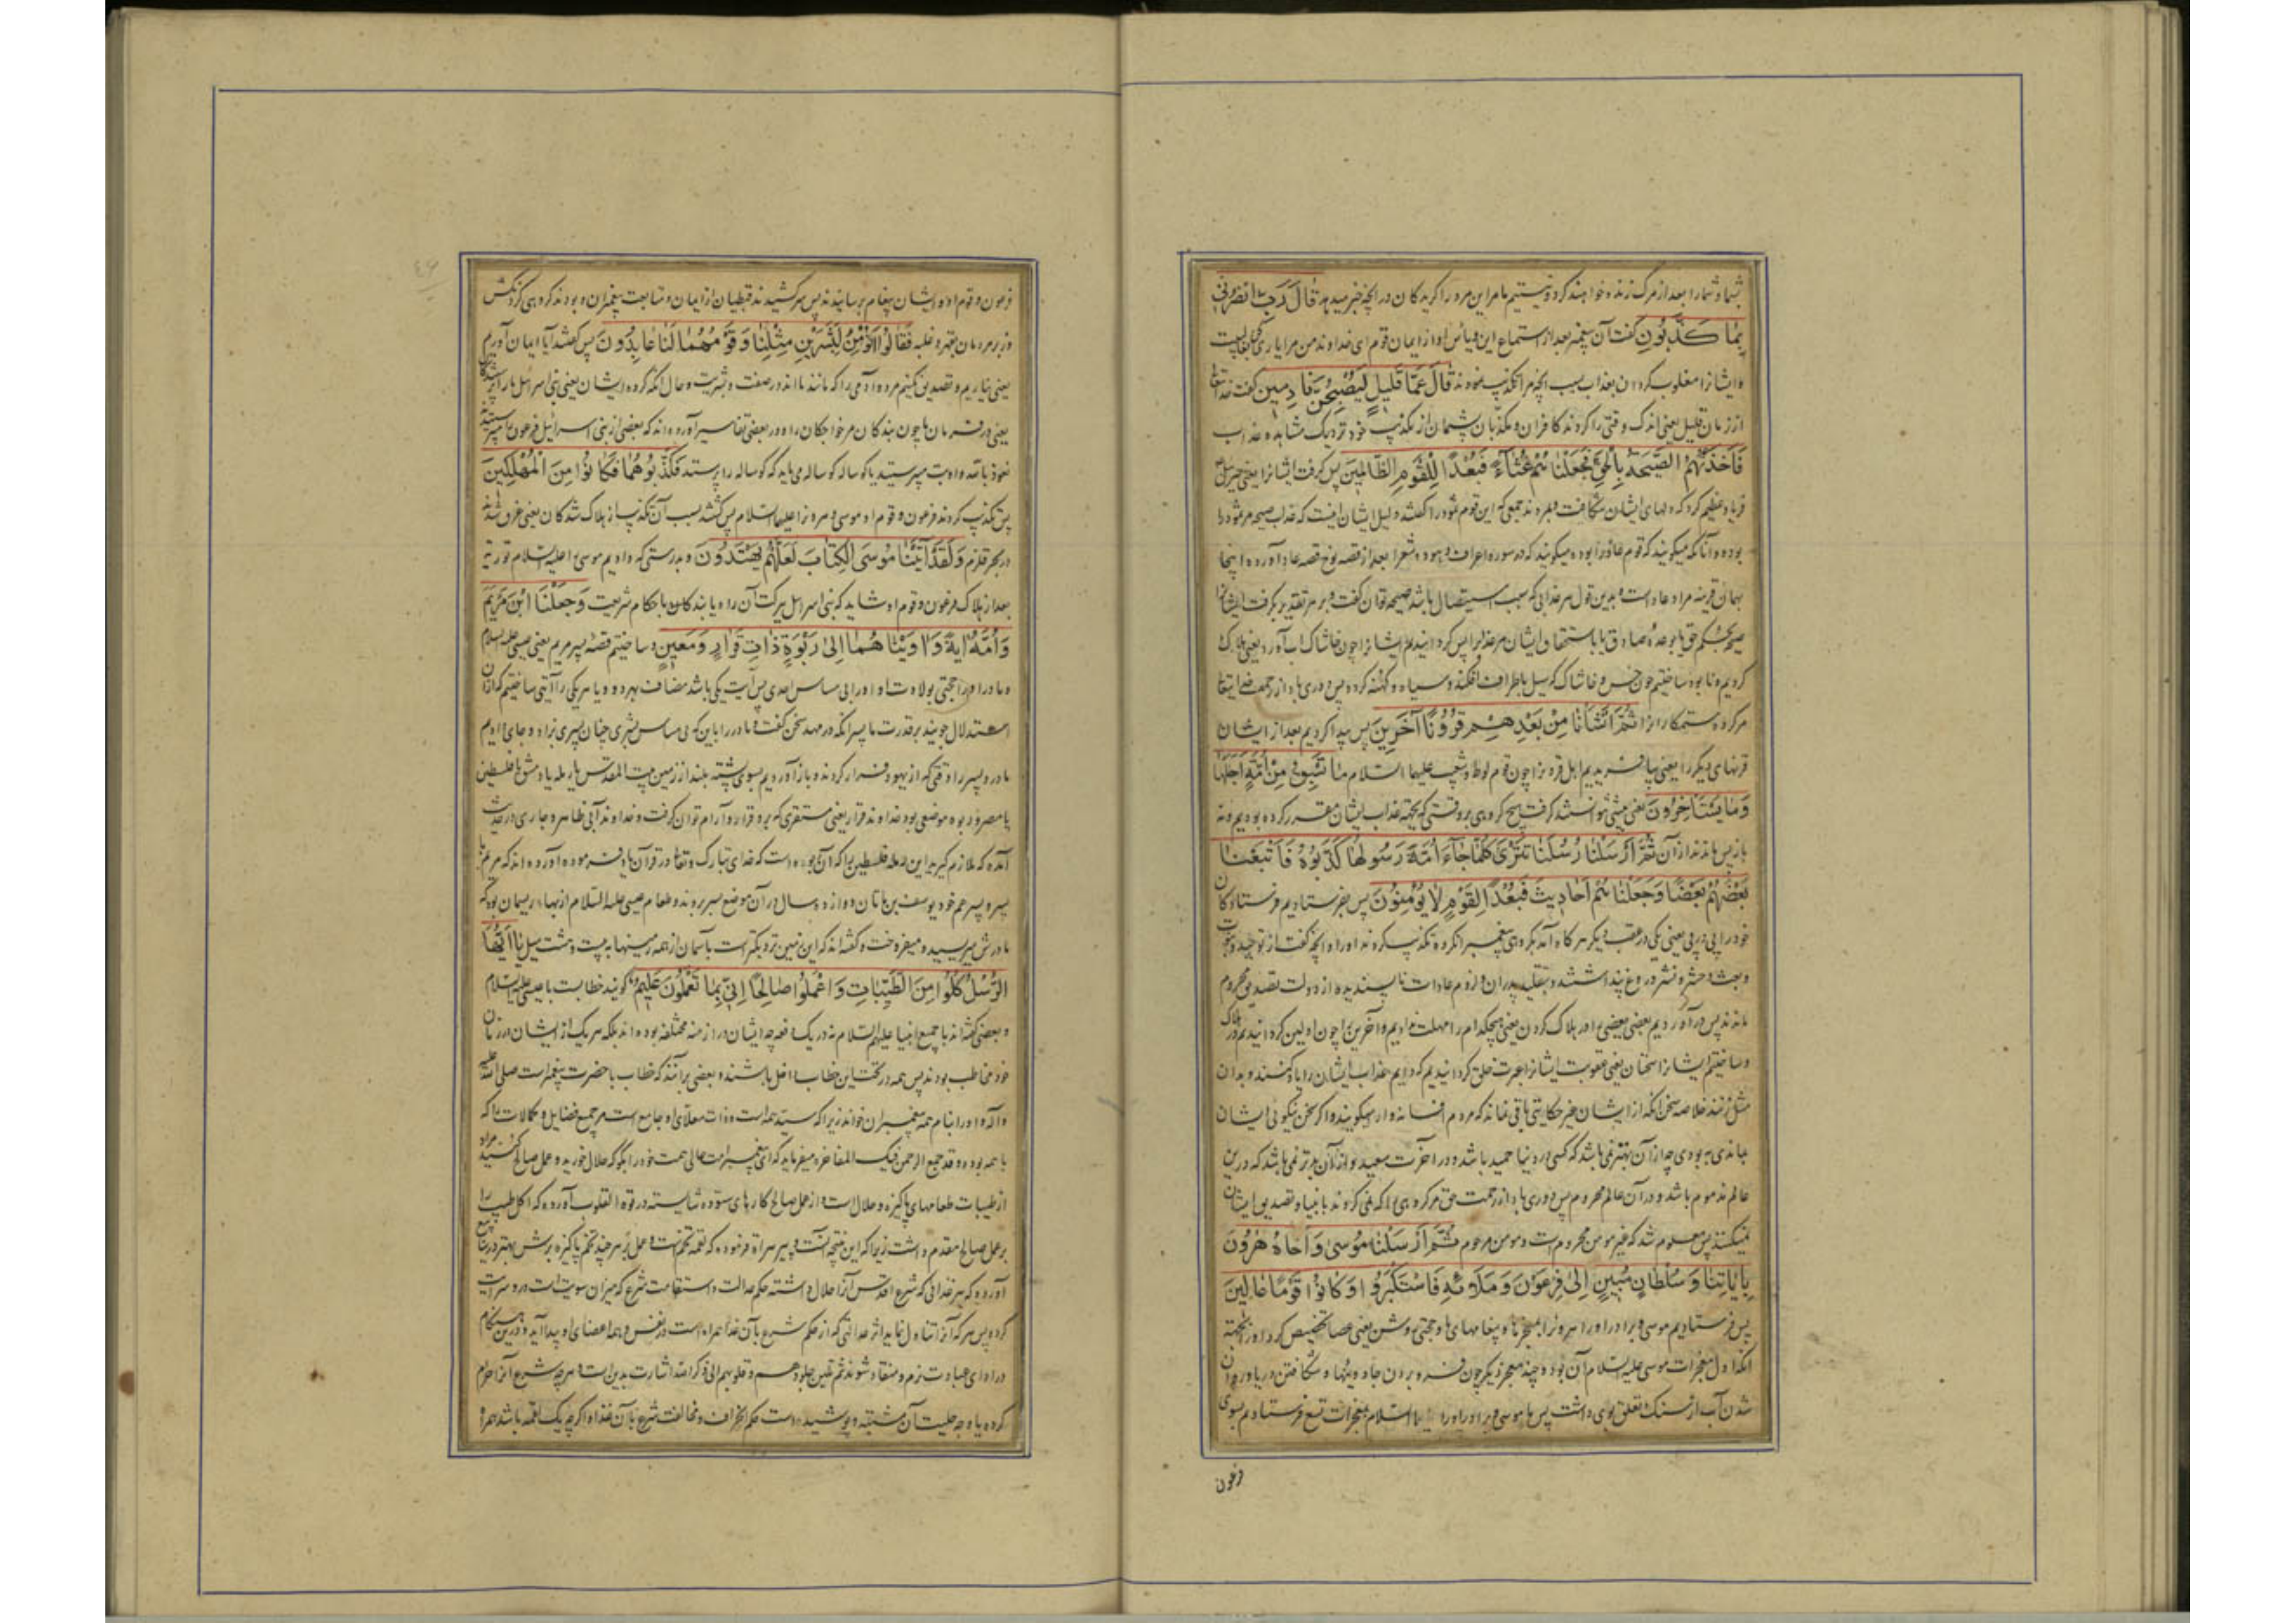 شما و شما را بعد از مرگ زنده خواهند کرد و نیستیم ما مر این مرد را گرویدکان در آنچه خبر میدهد قَالَ رَبِّ انْصُرْنِی
بِمَا كَذَّبُونِ گفت آن پیغمبر بعد از استماع این و یأس او از ایمان قوم ای خداوند من مرا یاری کن
و ایشانرا مغلوب کردان بعذاب بسبب آنچه مرا تکذیب نمودند قَالَ عَمَّا قَلِيلٍ لَيُصْبِحُنَّ نَادِمِينَ گفت خدایتعالی
از زمان قلیل یعنی اندک وقتی را کردند کافران و مکذبان پشیمان از تکذیب خود نزدیک مشاهده عذاب
فَأَخَذَتْهُمُ الصَّيْحَةُ بِالْحَقِّ فَجَعَلْنَاهُمْ غُثَاءً فَبُعْدًا لِلْقَوْمِ الظَّالِمِينَ پس گرفت ایشانرا یعنی جبرئیل
فریاد عظیم کرد که دلهای ایشان شکافت و بمردند جمعی که این قوم ثمود را گفتند دلیل ایشان اینست که عذاب صیحه مر ثمود را
بوده و آنانکه میگویند که قوم عاد را بوده میگویند که در سوره اعراف و هود و شعرا بعد از قصه نوح قصه عاد آورده اینجا
بهمان قرینه مراد عاد است و بدین قول هر عذابی که سبب استیصال باشد صیحه توان گفت و بر هر تقدیر بگرفت ایشانرا
صیحه بحکم حق یا بوعده صادق یا باستحقاق ایشان مر عذاب را پس گردانیدیم ایشانرا چون خاشاک آب آورد یعنی هلاک
کردیم و نابود ساختیم چون خس و خاشاک که سیل باطراف افکند و سیاه و کهنه کرده پس دوری باد از رحمت خدایتعالی
مر گروه ستمکارانرا ثُمَّ أَنْشَأْنَا مِنْ بَعْدِهِمْ قُرُونًا آخَرِينَ پس پیدا کردیم بعد از ایشان
قرنهای دیگر را یعنی بیافریدیم اهل قرونرا چون قوم لوط و شعیب علیهما السلام مَا تَسْبِقُ مِنْ أُمَّةٍ أَجَلَهَا
وَمَا يَسْتَأْخِرُونَ یعنی پیشی نتوانستند گرفت هیچ گروهی بر وقتی که بجهة عذاب ایشان مقرر کرده بودیم و نه
باز پس ماندند از آن ثُمَّ أَرْسَلْنَا رُسُلَنَا تَتْرَى كُلَّمَا جَاءَ أُمَّةً رَسُولُهَا كَذَّبُوهُ فَأَتْبَعْنَا
بَعْضَهُمْ بَعْضًا وَجَعَلْنَاهُمْ أَحَادِيثَ فَبُعْدًا لِقَوْمٍ لَا يُؤْمِنُونَ پس بفرستادیم فرستادکان
خود را پی در پی یعنی یکی در عقب دیگر هر گاه آمد بگروهی پیغمبر آنگروه تکذیب کردند او را و آنچه گفت از توحید و نبوت
و بعث و حشر و نشر دروغ پنداشتند و بتقلید پدران و لزوم عادات ناپسندیده از دولت تصدیق محروم
ماندند پس در آوردیم بعضی بعضی را در هلاک کردن یعنی هیچکدام را مهلت ندادیم و آخرین را چون اولین گردانیدیم در هلاک
و ساختیم ایشانرا سخنان یعنی عقوبت ایشانرا عبرت خلق گردانیدیم که دایم عذاب ایشان را یاد کنند و بدان
مثل زنند خلاصه سخن آنکه از ایشان غیر حکایتی باقی نماند که مردم افسانه‌وار میگویند و اگر سخن نیکوئی ایشان
ماندی به بودی چه از آن بهتر نمی باشد که کسی در دنیا حمید باشد و در آخرت سعید و از آن بدتر نمی باشد که درین
عالم مذموم باشد و در آن عالم محروم پس دوری باد از رحمت حق مر گروهی را که نمی گروند بانبیا و تصدیق ایشان
نمیکنند پس معلوم شد که غیر مومن محروم است و مومن مرحوم ثُمَّ أَرْسَلْنَا مُوسَى وَأَخَاهُ هَرُونَ
بِآيَاتِنَا وَسُلْطَانٍ مُبِينٍ إِلَى فِرْعَوْنَ وَمَلَائِهِ فَاسْتَكْبَرُوا وَكَانُوا قَوْمًا عَالِينَ
پس فرستادیم موسی و برادر او را هرونرا بمعجزها و پیغامهای ما و حجتی روشن یعنی عصا تخصیص کرد او را بجهة
آنکه اول معجزات موسی علیه السلام آن بود و چند معجز دیگر چون فرو بردن جادوئیها و شکافتن دریا و روان
شدن آب از سنک تعلق بوی داشت پس ما موسی و برادر او را علیهما السلام بمعجزات تسع فرستادیم بسوی
فرعون
فرعون و قوم او و ایشان پیغام برسانیدند پس سر کشیدند قبطیان از ایمان و متابعت پیغمبران و بودند گروهی گردنکش
و زبر مردمان بقهر و غلبه فَقَالُوا أَنُؤْمِنُ لِبَشَرَيْنِ مِثْلِنَا وَقَوْمُهُمَا لَنَا عَابِدُونَ پس گفتند آیا ایمان آوریم
یعنی نیاریم و تصدیق نکنیم مر دو آدمی را که مانند ما اند در صفت بشریت و حال آنکه گروه ایشان یعنی بنی اسرائیل ما را پرستندکانند
یعنی در فرمان ما چون بندکان مر خواجکان را و در بعضی تفاسیر آورده‌اند که بعضی از بنی اسرائیل فرعون را میپرستیدند
نعوذ بالله و او بت میپرستید یا گوساله گوساله می باید که گوساله را پرستد فَكَذَّبُوهُمَا فَكَانُوا مِنَ الْمُهْلَكِينَ
پس تکذیب کردند فرعون و قوم او موسی و هرونرا علیهما السلام پس گشتند بسبب آن تکذیب از هلاک شدکان یعنی غرق شدند
در بحر قلزم وَلَقَدْ آتَيْنَا مُوسَى الْكِتَابَ لَعَلَّهُمْ يَهْتَدُونَ و بدرستی که دادیم موسی را علیه السلام توریة
بعد از هلاک فرعون و قوم او شاید که بنی اسرائیل ببرکت آن راه یابندکان باحکام شریعت وَجَعَلْنَا ابْنَ مَرْيَمَ
وَأُمَّهُ آيَةً وَآوَيْنَاهُمَا إِلَى رَبْوَةٍ ذَاتِ قَرَارٍ وَمَعِينٍ و ساختیم قصه پسر مریم یعنی عیسی علیه السلام
و مادر او را حجتی بولادت او را بی مساس احدی پس آیت یکی باشد مضاف بهر دو و یا هر یکی را آیتی ساختیم که از آن
استدلال جویند بر قدرت ما پسر آنکه در مهد سخن گفت و مادر را باین که بی مساس بشری چنان پسری بزاد و جای دادیم
مادر و پسر را وقتی که از یهود فرار کردند و باز آوردیم بسوی پشته بلند از زمین بیت المقدس یا رمله یا دمشق یا فلسطین
یا مصر و ربوه موضعی بود خداوند قرار یعنی مستقری که برو قرار و آرام توان گرفت و خداوند آبی ظاهر و جاری در حدیث
آمده که ملازم گیرید این رمله فلسطین را که آن ربوه است که خدای تبارک و تعالی در قرآن یاد فرموده آورده اند که مریم با
پسر و پسر عم خود یوسف بن ماتان دوازده سال در آن موضع بسر بردند و طعام عیسی علیه السلام از بهاء ریسمان بود که
مادرش میریسید و میفروخت و گفته اند که این زمین نزدیکتر است بآسمان از همه زمینها به بیست و هشت میل يَا أَيُّهَا
الرُّسُلُ كُلُوا مِنَ الطَّيِّبَاتِ وَاعْمَلُوا صَالِحًا إِنِّي بِمَا تَعْمَلُونَ عَلِيمٌ گویند خطابست با عیسی علیه السلام
و بعضی گفته اند با جمیع انبیا علیهم السلام نه در یک دفعه چه ایشان در ازمنه مختلفه بوده اند بلکه هر یک از ایشان در زمان
خود مخاطب بودند پس همه در تحت این خطاب داخل باشند و بعضی برآنند که خطاب با حضرت پیغمبر است صلی الله علیه
و آله و او را بنام همه پیغمبران خواند زیرا که سید همه است و ذات معلای او جامع است مر جمیع فضایل و کمالات را که
با همه بوده و قد جمع الرحمن فیک المفاخر و میفرماید که ای پیغمبر امت عالی همت خود را بگو که حلال خورید و عمل صالح کنید مراد
از طیبات طعامهای پاکیزه و حلال است و از عمل صالح کارهای ستوده و شایسته در قوة القلوب آورده که اکل طیب را
بر عمل صالح مقدم داشت زیرا که این نتیجه آنست و پیر هراة فرموده که لقمه تخمست و عمل بر هر چند تخم پاکیزه برش بهتر
آورده که هر غذائی که شرع اقدس آنرا حلال داشته حکم عدالت و استقامت شرع که میزان سویت است درو سرایت
کرده پس هر که آنرا تناول نماید اثر عدالتی که از حکم شرع بآن غذا همراه است در نفس و همه اعضای او پیدا آید و درین هنگام
در ادای عبادت نرم و منقاد شوند ثم تلین جلودهم و قلوبهم الی ذکر الله اشارت بدین است و هر چه شرع آنرا حرام
کرده یا وجه حلیت آن مشتبه و پوشیده است حکم انحراف و مخالفت شرع با آن غذا اگر چه یک لقمه باشد همراه